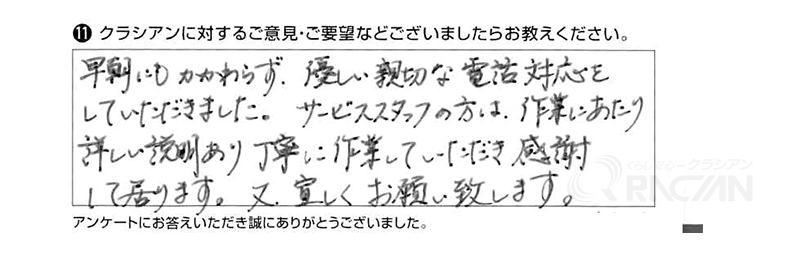 ⑪ クラシアンに対するご意見・ご要望などございましたらお教えください。
早朝にもかかわらず、優しい親切な電話対応を
していただきました。サービススタッフの方は、作業にあたり
詳しい説明あり丁寧に作業していただき感謝
して居ります。又、宜しくお願い致します。
くらし安心 クラシアン
QRACIAN
アンケートにお答えいただき誠にありがとうございました。